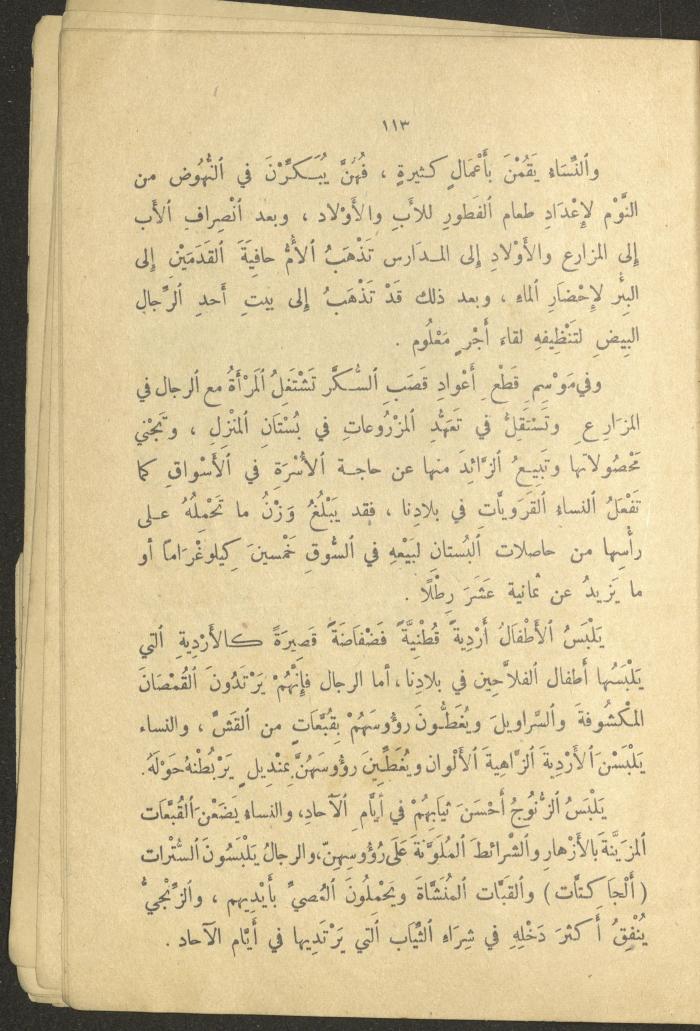 ١١٣
وٱلنِّسَاءُ يَقُمْنَ بِأَعْمَالٍ كَثِيرةٍ ، فَهُنَّ يُبَكِّرْنَ في ٱلنُّهُوض من
النَّوْم لإِعْدَادِ طعام ٱلفَطورِ للأَبِ والأَوْلاد ، وبعد ٱنْصِرافِ ٱلأب
إِلى المزارع والأَوْلادِ إِلى المدَارس تَذْهَبُ ٱلأُمُّ حافِيَةَ ٱلقَدَمَيْنِ إِلى
البِئْرِ لإِحْضَارِ ٱلماءِ ، وبعد ذلك قَدْ تَذْهَبُ إِلى بيتِ أَحدِ ٱلرِّجالِ
البِيضِ لتَنْظِيفِهِ لقاء أَجْرٍ مَعْلُوم .
وفي مَوْسِمِ قَطْعِ أَعْوادِ قَصَبِ ٱلسُّكَّرِ تَشْتَغِلُ ٱلمَرْأَةُ مع ٱلرجال في
المزَارِعِ وتَسْتَقِلُّ في تَعَهُّدِ ٱلمَزْرُوعاتِ في بُسْتَانِ ٱلمَنْزِلِ ، وتَجْنِي
مَحْصُولاتِها وتَبِيعُ ٱلزَّائِدَ منها عن حاجةِ ٱلأُسْرَةِ في ٱلأَسْواقِ كما
تَفْعَلُ ٱلنساء ٱلقَرَوِيَّاتُ في بلادِنا ، فقد يَبْلُغُ وَزْنُ ما تَحْمِلُهُ على
رأْسِها من حاصلات ٱلبُستانِ لبَيْعِهِ في ٱلسُّوقِ خَمْسينَ كِيلوغْرَامًا أو
ما يَزيدُ عن ثمانية عَشَرَ رِطْلًا .
يَلْبَسُ ٱلأَطْفَالُ أَرْدِيةً قُطْنِيَّةً فَضْفَاضَةً قَصِيرَةً كالأَرْدِيةِ ٱلتي
يَلْبَسُها أطفال ٱلفلاَّحين في بلادِنا ، أما الرجال فإِنَّهُمْ يَرْتَدُونَ ٱلقُمْصَانَ
المَكْشُوفةَ وٱلسَّراويلَ ويُغَطُّونَ رؤُوسَهُمْ بِقُبَّعَاتٍ من ٱلقَشِّ ، والنساء
يَلْبَسْنَ ٱلأَرْدِيَةَ ٱلزَّاهِيَةَ ٱلأَلْوان ويُغَطِّينَ رؤُوسَهُنَّ بِمنْديلٍ يَرْبِطْنَهُ حَوْلَهُ .
يَلْبَسُ ٱلزُّنُوجُ أَحْسَنَ ثيابِهِمْ في أَيَّامِ ٱلآحادِ ، والنساء يَضَعْنَ ٱلقُبَّعَات
المزَيَّنَةَ بالأَزْهارِ وٱلشَّرائطَ ٱلمُلَوَّنَةَ عَلَى رُؤُوسِهِنّ ، والرجالُ يَلْبَسُونَ ٱلسُّتْرات
( ٱلْجَاكتَّات ) وٱلقَبَّات ٱلمُنَشَّاةَ ويَحْمِلُونَ ٱلعُصيَّ بأَيْدِيهم ، وٱلزِّنْجيُّ
يُنْفِقُ أَكثَرَ دَخْلِهِ في شِرَاءِ ٱلثِّيَاب ٱلَّتي يَرْتَدِيها في أَيَّام ٱلآحاد .